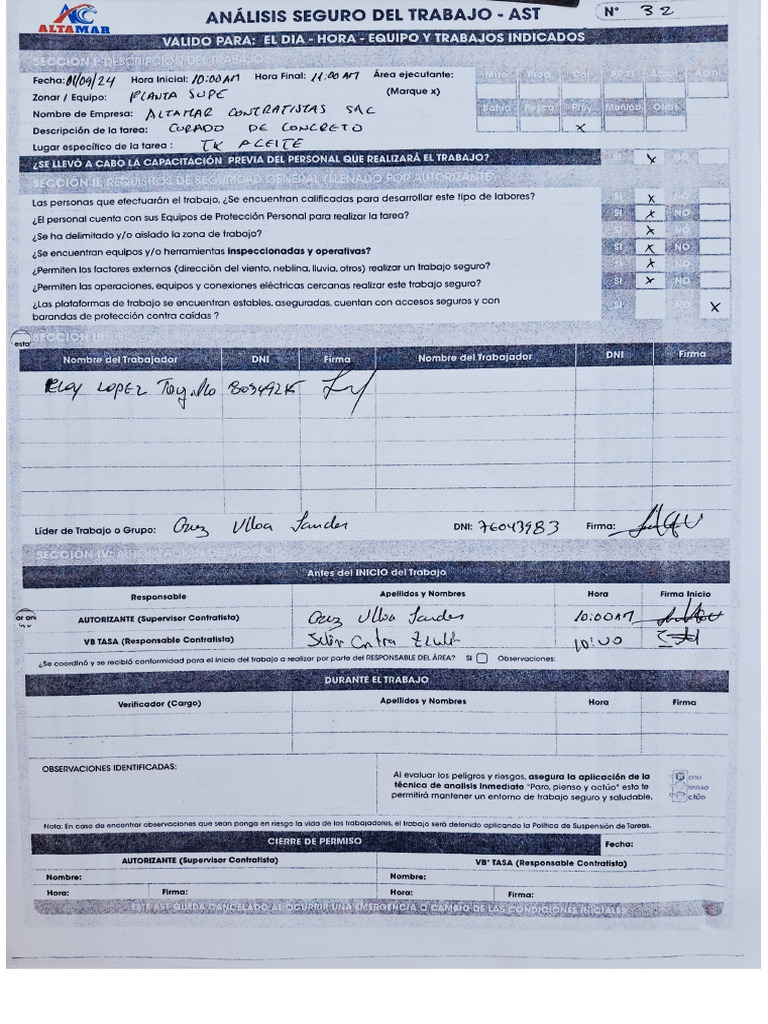 AC
ALTAMAR
ANÁLISIS SEGURO DEL TRABAJO - AST
N° 32
VALIDO PARA: EL DIA - HORA - EQUIPO Y TRABAJOS INDICADOS
SECCIÓN I: DESCRIPCIÓN DEL TRABAJO
Fecha: 01/09/24 Hora Inicial: 10:00 AM Hora Final: 11:00 AM Área ejecutante:
(Marque x)
Zonar / Equipo: PLANTA SUPE
Nombre de Empresa: ALTAMAR CONTRATISTAS SAC
Bahía Pesca Proy. Maniob. Otros
Descripción de la tarea: CURADO DE CONCRETO x
Lugar específico de la tarea : TK ACEITE
¿SE LLEVÓ A CABO LA CAPACITACIÓN PREVIA DEL PERSONAL QUE REALIZARÁ EL TRABAJO? SI x NO
SECCIÓN II: REQUISITOS DE SEGURIDAD GENERAL (LLENADO POR AUTORIZANTE)
Las personas que efectuarán el trabajo, ¿Se encuentran calificadas para desarrollar este tipo de labores? SI x NO
¿El personal cuenta con sus Equipos de Protección Personal para realizar la tarea? SI x NO
¿Se ha delimitado y/o aislado la zona de trabajo? SI x NO
¿Se encuentran equipos y/o herramientas inspeccionadas y operativas? SI x NO
¿Permiten los factores externos (dirección del viento, neblina, lluvia, otros) realizar un trabajo seguro? SI x NO
¿Permiten las operaciones, equipos y conexiones eléctricas cercanas realizar este trabajo seguro? SI x NO
¿Las plataformas de trabajo se encuentran estables, aseguradas, cuentan con accesos seguros y con
barandas de protección contra caídas ? SI NO x
esta
SECCIÓN
Nombre del Trabajador DNI Firma Nombre del Trabajador DNI Firma
Eloy LOPEZ
Líder de Trabajo o Grupo: Cruz Ulloa Sander DNI: 76043983 Firma:
SECCIÓN IV: AUTORIZACIÓN DEL TRABAJO
Antes del INICIO del Trabajo
Responsable Apellidos y Nombres Hora Firma Inicio
AUTORIZANTE (Supervisor Contratista) Cruz Ulloa Sander 10:00AM
VB TASA (Responsable Contratista) 10:00
¿Se coordinó y se recibió conformidad para el inicio del trabajo a realizar por parte del RESPONSABLE DEL ÁREA? SI Observaciones:
DURANTE EL TRABAJO
Verificador (Cargo) Apellidos y Nombres Hora Firma
OBSERVACIONES IDENTIFICADAS:
Al evaluar los peligros y riesgos, asegura la aplicación de la
técnica de analisis inmediato "Paro, pienso y actúo" esto te
permitirá mantener un entorno de trabajo seguro y saludable.
Nota: En caso de encontrar observaciones que sean ponga en riesgo la vida de los trabajadores, el trabajo será detenido aplicando la Política de Suspensión de Tareas.
CIERRE DE PERMISO Fecha:
AUTORIZANTE (Supervisor Contratista) VB° TASA (Responsable Contratista)
Nombre: Nombre:
Hora: Firma: Hora: Firma:
ESTE AST QUEDA CANCELADO AL OCURRIR UNA EMERGENCIA O CAMBIO DE LAS CONDICIONES INICIALES